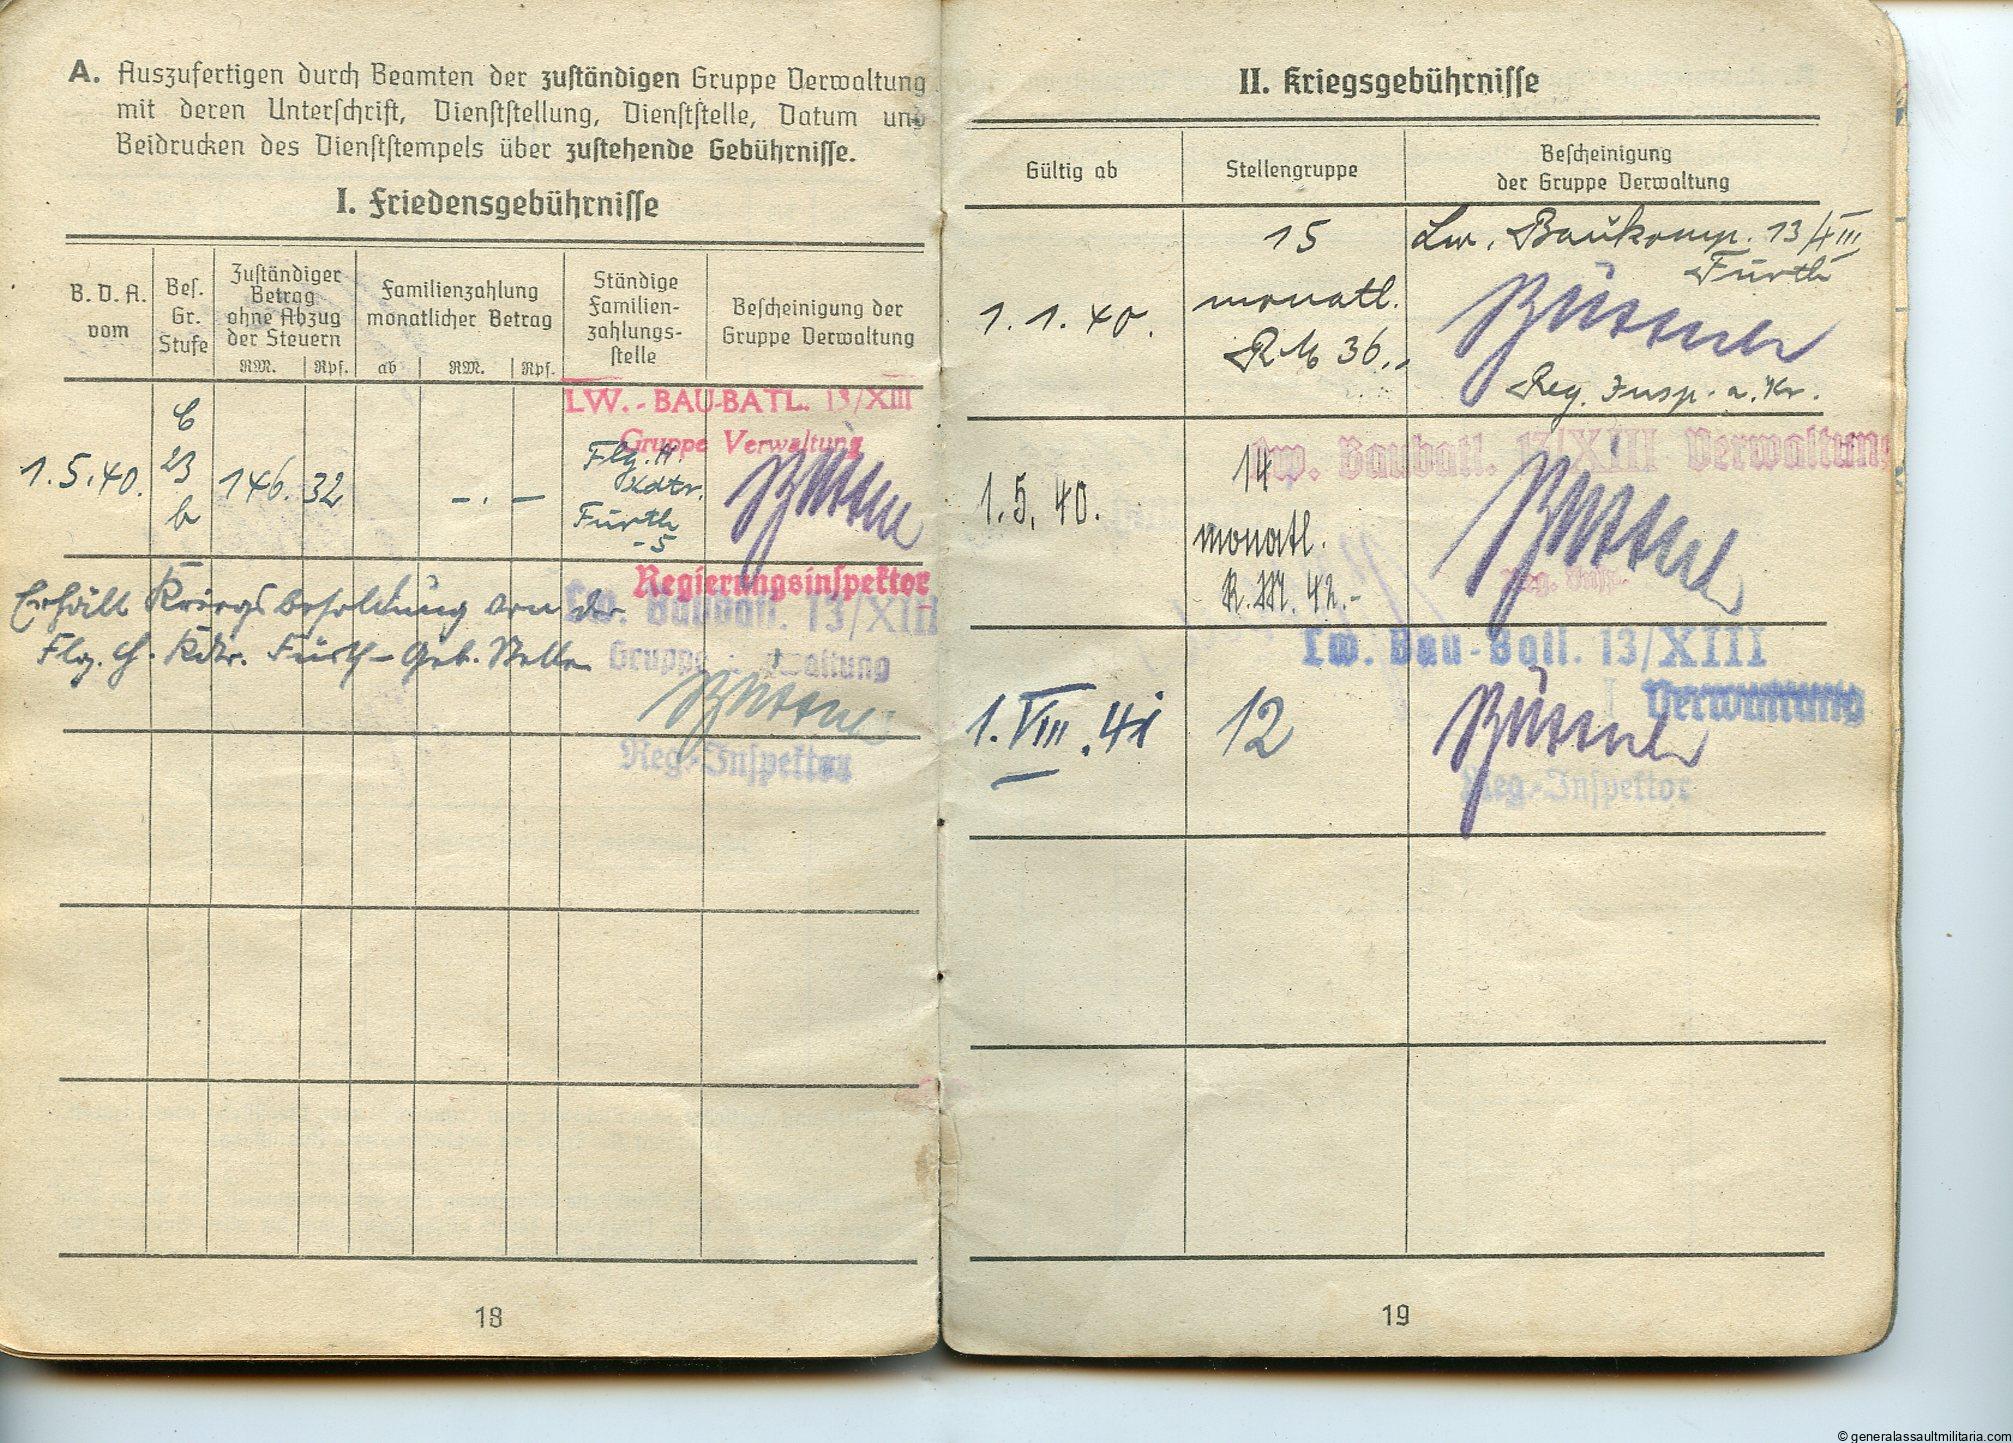 A. Auszufertigen durch Beamten der zuständigen Gruppe Verwaltung
mit deren Unterschrift, Dienststellung, Dienststelle, Datum und
Beidrucken des Dienststempels über zustehende Gebührnisse.
I. Friedensgebührnisse
B. D. A.
vom
Bes.
Gr.
Stufe
Zuständiger
Betrag
ohne Abzug
der Steuern
RM. Rpf.
Familienzahlung
monatlicher Betrag
ab RM. Rpf.
Ständige
Familien-
zahlungs-
stelle
Bescheinigung der
Gruppe Verwaltung
LW.-BAU-BATL. 13/XIII
Gruppe Verwaltung
1.5.40.
C
23
b
146. 32
- . -
Flg. H.
Kdtr.
Fürth
-5
Regierungsinspektor
Erhält Kriegsbesoldung von der
Flg. H. Kdtr. Fürth - Geb. Stelle
Lw. Baubatl. 13/XIII
Gruppe Verwaltung
Reg.-Inspektor
18
II. Kriegsgebührnisse
Gültig ab
Stellengruppe
Bescheinigung
der Gruppe Verwaltung
1.1.40.
15
monatl.
RM 36.,
Lw. Baukomp. 13/XIII
Fürth
Reg. Insp. a. Kr.
Lw. Baubatl. 13/XIII Verwaltung
1.5.40.
14
monatl.
R.M. 42.-
Reg. Insp.
Lw. Bau-Batl. 13/XIII
Verwaltung
1.VIII.41
12
Reg.-Inspektor
19
© generalassaultmilitaria.com